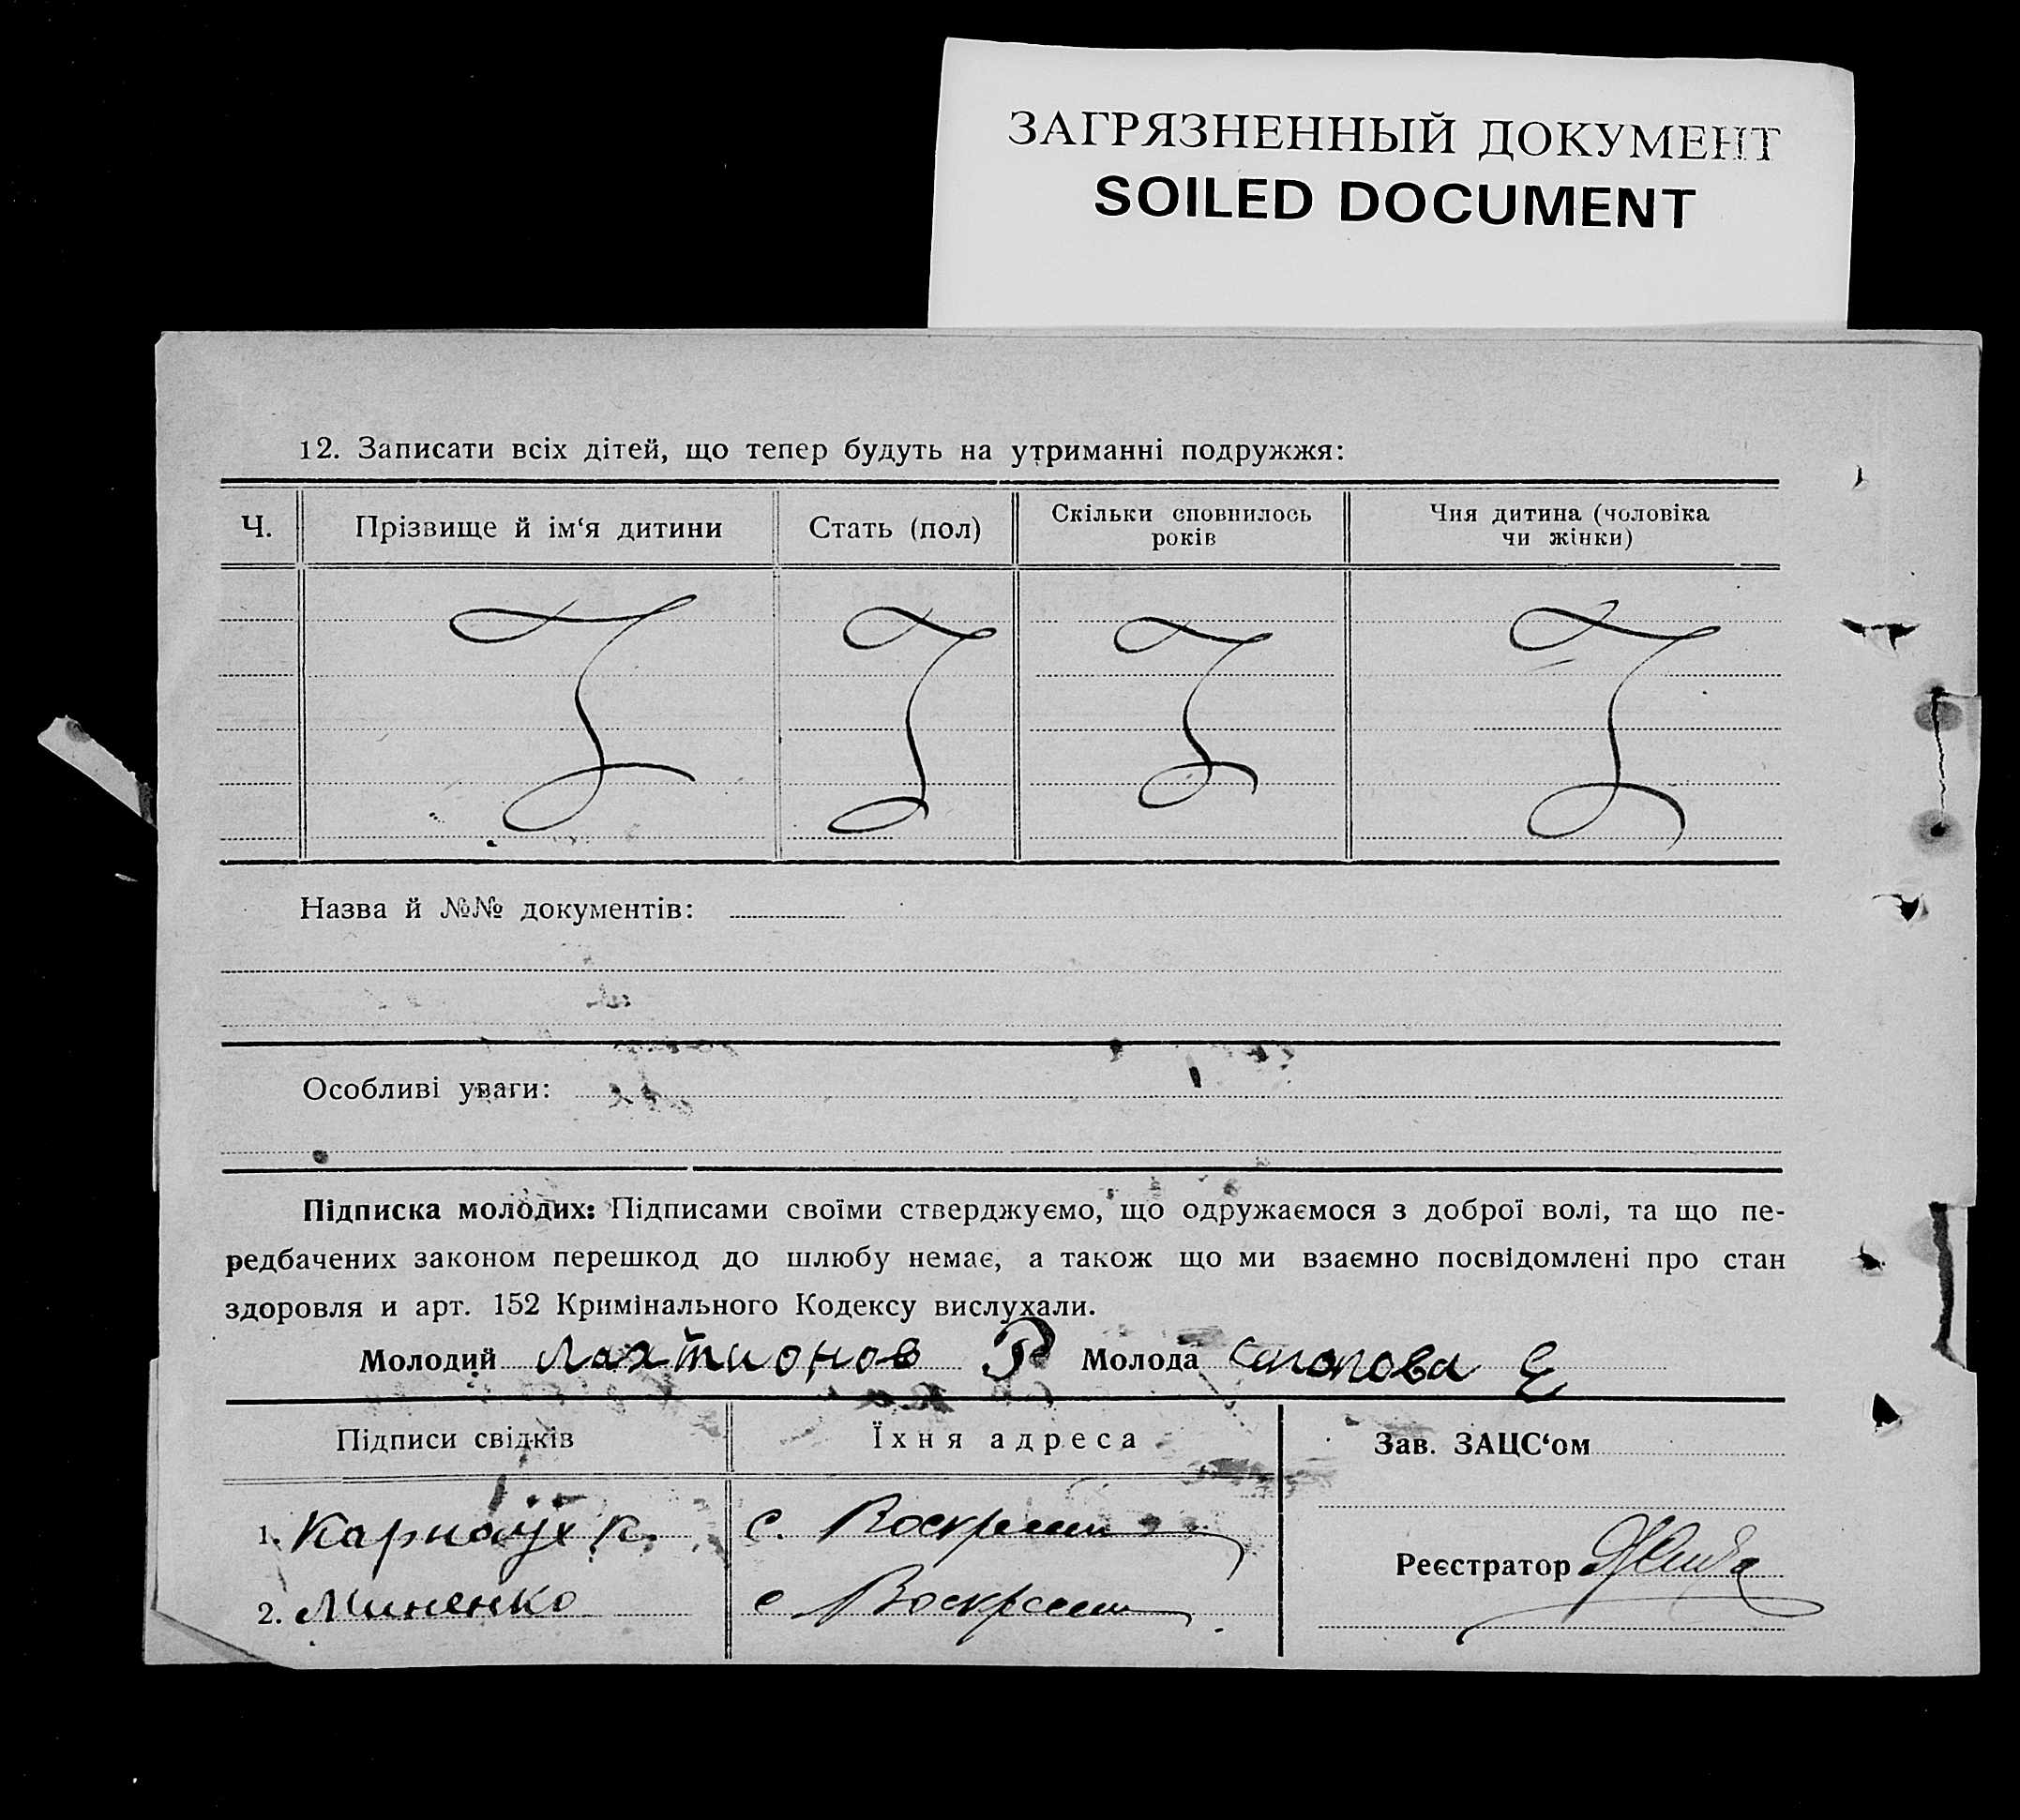 ЗАГРЯЗНЕННЫЙ ДОКУМЕНТ
SOILED DOCUMENT
12. Записати всіх дітей, що тепер будуть на утриманні подружжя:
Ч. Прізвище й ім‘я дитини Стать (пол) Скільки сповнилось років Чия дитина (чоловіка чи жінки)
Назва й №№ документів:
Особливі уваги:
Підписка молодих: Підписами своїми стверджуємо, що одружаємося з доброї волі, та що пе-
редбачених законом перешкод до шлюбу немає, а також що ми взаємно посвідомлені про стан
здоровля и арт. 152 Кримінального Кодексу вислухали.
Молодий Лахтионов Р Молода Е
Підписи свідків Їхня адреса Зав. ЗАЦС‘ом
1. Карнаух К. с. Воскресен
Реєстратор
2. Миненко с Воскресен